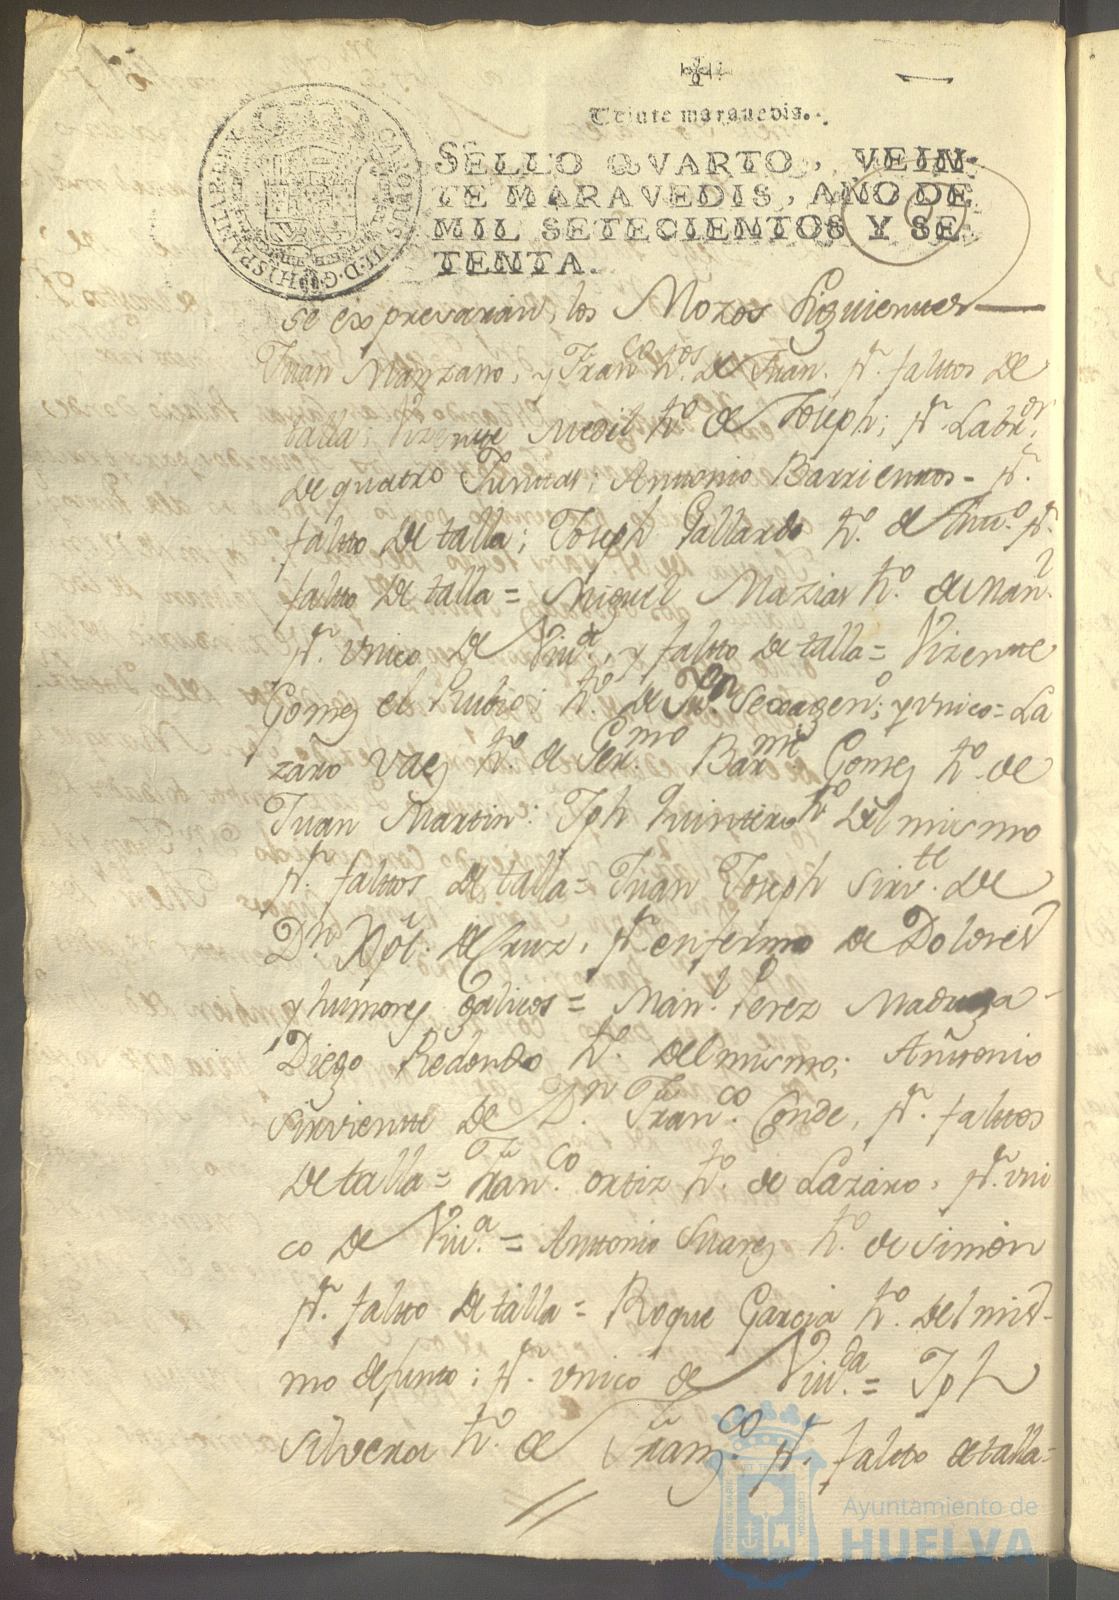 Veinte maravedis.
SELLO QVARTO, VEIN-
TE MARAVEDIS, AÑO DE
MIL SETECIENTOS Y SE-
TENTA.
CAROLUS III D·G·HISPANIAR·REX
se expresaran, los Mozos siguientes
Juan Manzano, y Fran.co h.os de Juan. p.r faltos de
talla; Vizente h.o de Joseph; p.r Labr.or
de quatro Juntas; Antonio Barrientos = p.r
falto de talla; Joseph Gallardo h.o de Ant.o p.r
falto de talla = Miguel Mazias h.o de Man.l
p.r vnico de Viu.a, y falto de talla = Vizente
Gomez el Rubio; h.o de Sexagen.o; y vnico = La
zaro Vaez h.o de Ger.mo Bar.me Gomez h.o de
Juan Martin: Jph Quintero h.o del mismo
p.r faltos de talla = Juan Joseph sirv.te de
D.n Xptl. de Cruz, p.r enfermo de Dolores
y humores galicos = Man.l Perez Maduga -
Diego Redondo h.o del mismo; Antonio
sirviente de D.n Fran.co Conde, p.r faltos
de talla = Fran.co ortiz h.o de Lazaro, p.r vni
co de Viu.a = Antonio Suarez h.o de Simon
p.r falto de talla = Roque Garcia h.o del mis-
mo defunto; p.r vnico de Viu.da = Jph
Silvera h.o de Fran.co p.r falto de talla =
Ayuntamiento de
HUELVA